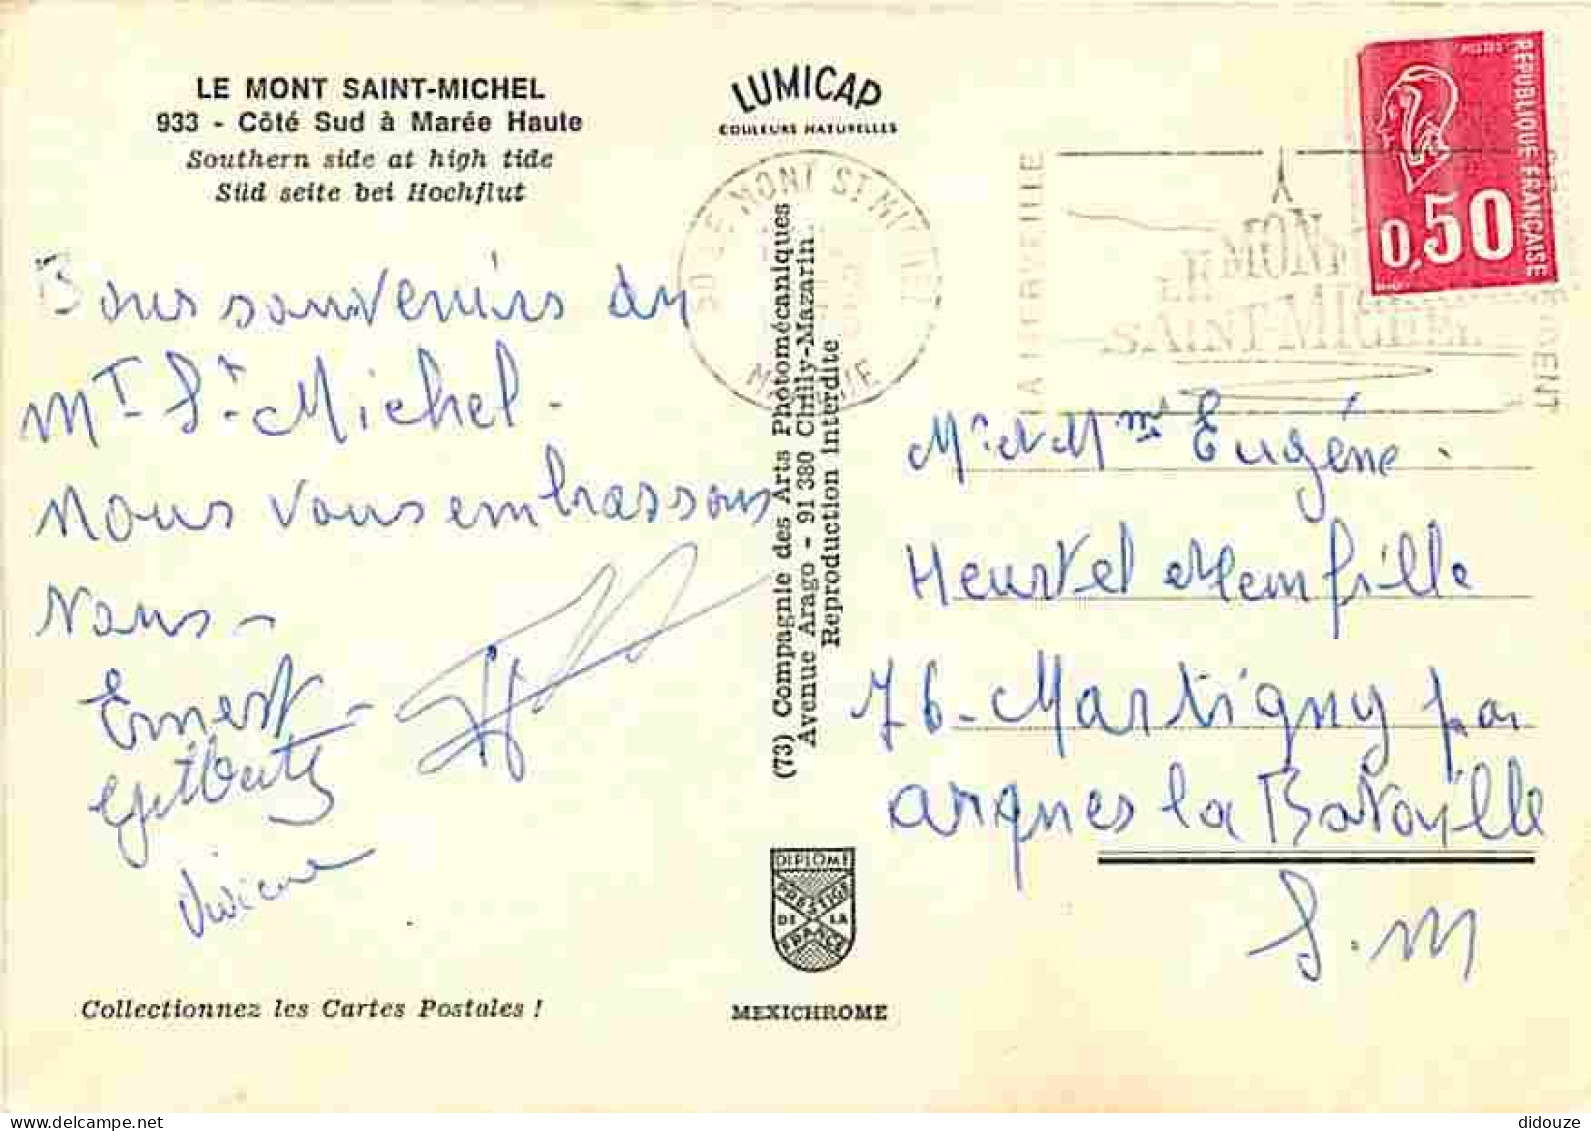 LE MONT SAINT-MICHEL
933 - Côté Sud à Marée Haute
Southern side at high tide
Süd seite bei Hochflut
LUMICAP
COULEURS NATURELLES
POSTES
REPUBLIQUE FRANÇAISE
0,50
50 LE MONT ST MICHEL
MANCHE
LA MERVEILLE
LE MONT
SAINT-MICHEL
Bons souvenirs du
Mt St Michel.
Nous vous embrassons
Tous -
Ernest
Gilberte
Viviane
(73) Compagnie des Arts Photomécaniques
Avenue Arago - 91 380 Chilly-Mazarin.
Reproduction interdite
Mr et Mme Eugéne
Heurtel et famille
76 - Martigny par
arques la Bataille
S. M
DIPLOME
PRESTIGE
DE LA
FRANCE
Collectionnez les Cartes Postales !
MEXICHROME
didouze